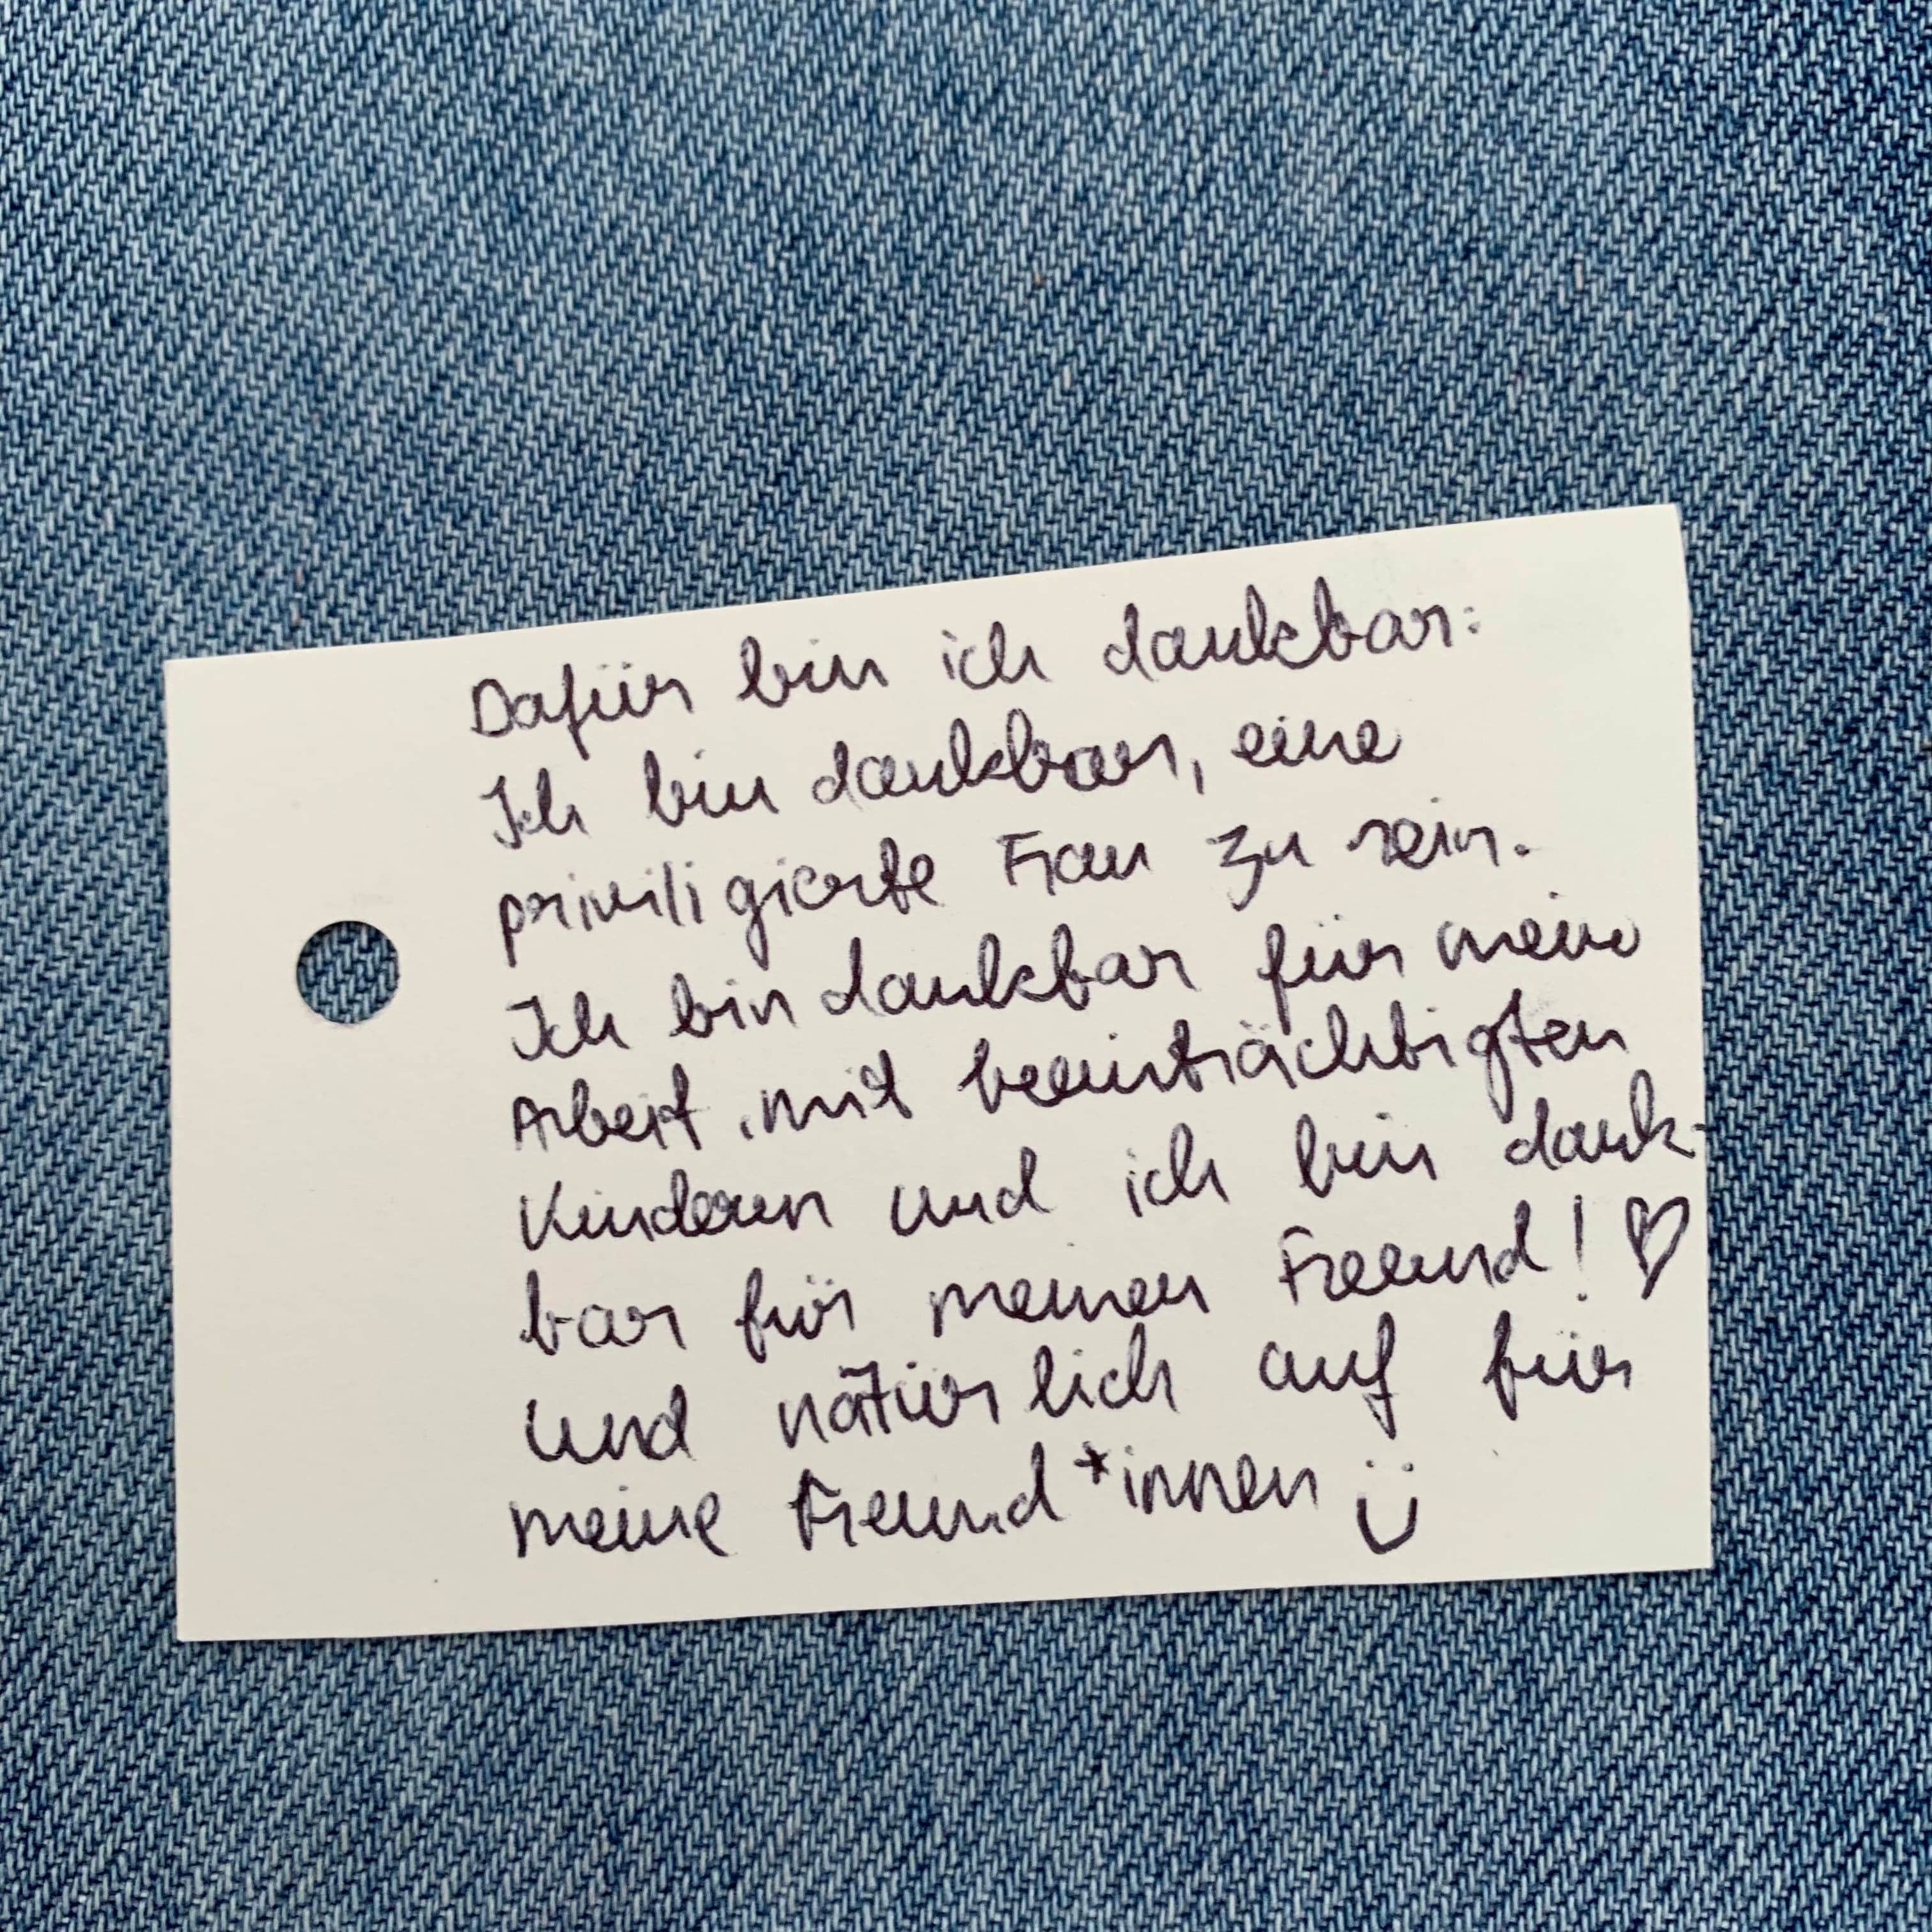 Dafür bin ich dankbar:
Ich bin dankbar, eine
priviligierte Frau zu sein.
Ich bin dankbar für meine
Arbeit mit beeinträchtigten
Kindern und ich bin dank-
bar für meinen Freund! ♡
und natürlich auf für
meine Freund*innen Ü